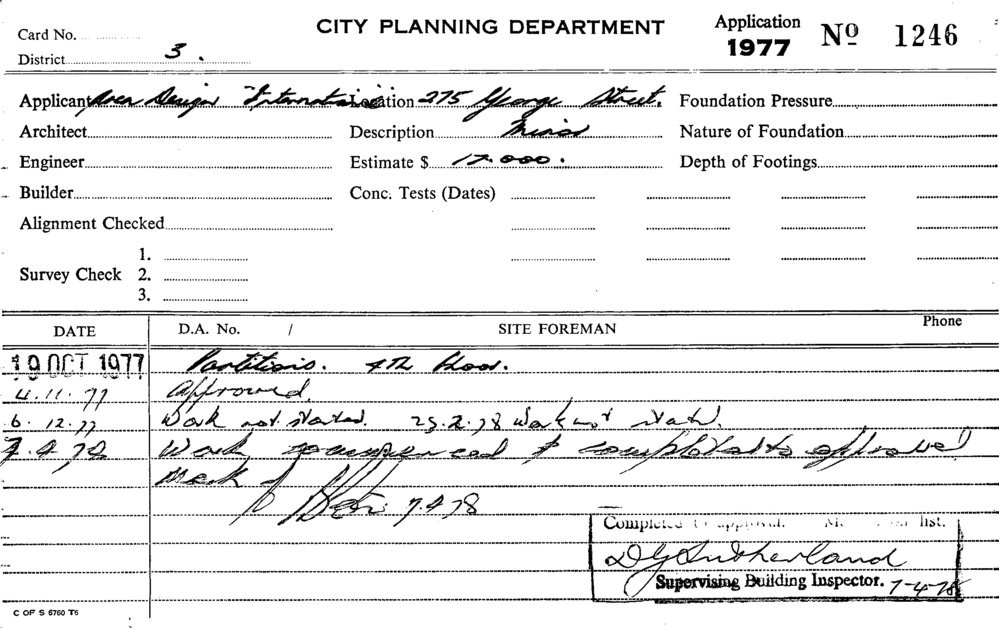 CITY PLANNING DEPARTMENT
Application
1977 Nº 1246
Card No.
District 3.
Applicant Area Design Internation Location 275 George Street. Foundation Pressure
Architect Description Minor Nature of Foundation
Engineer Estimate $ 17.000. Depth of Footings
Builder Conc. Tests (Dates)
Alignment Checked
1.
Survey Check 2.
3.
DATE D.A. No. / SITE FOREMAN Phone
19 OCT 1977 Partitions. 4TH floor.
4.11.77 Approved.
6.12.77 Work not started. 23.2.78 Work not started.
7.4.78 Work commenced & completed to approval
Mark 7.4.78
Completed to approval. list.
D G Sutherland
Supervising Building Inspector. 7-4-78
C OF S 6760 T6